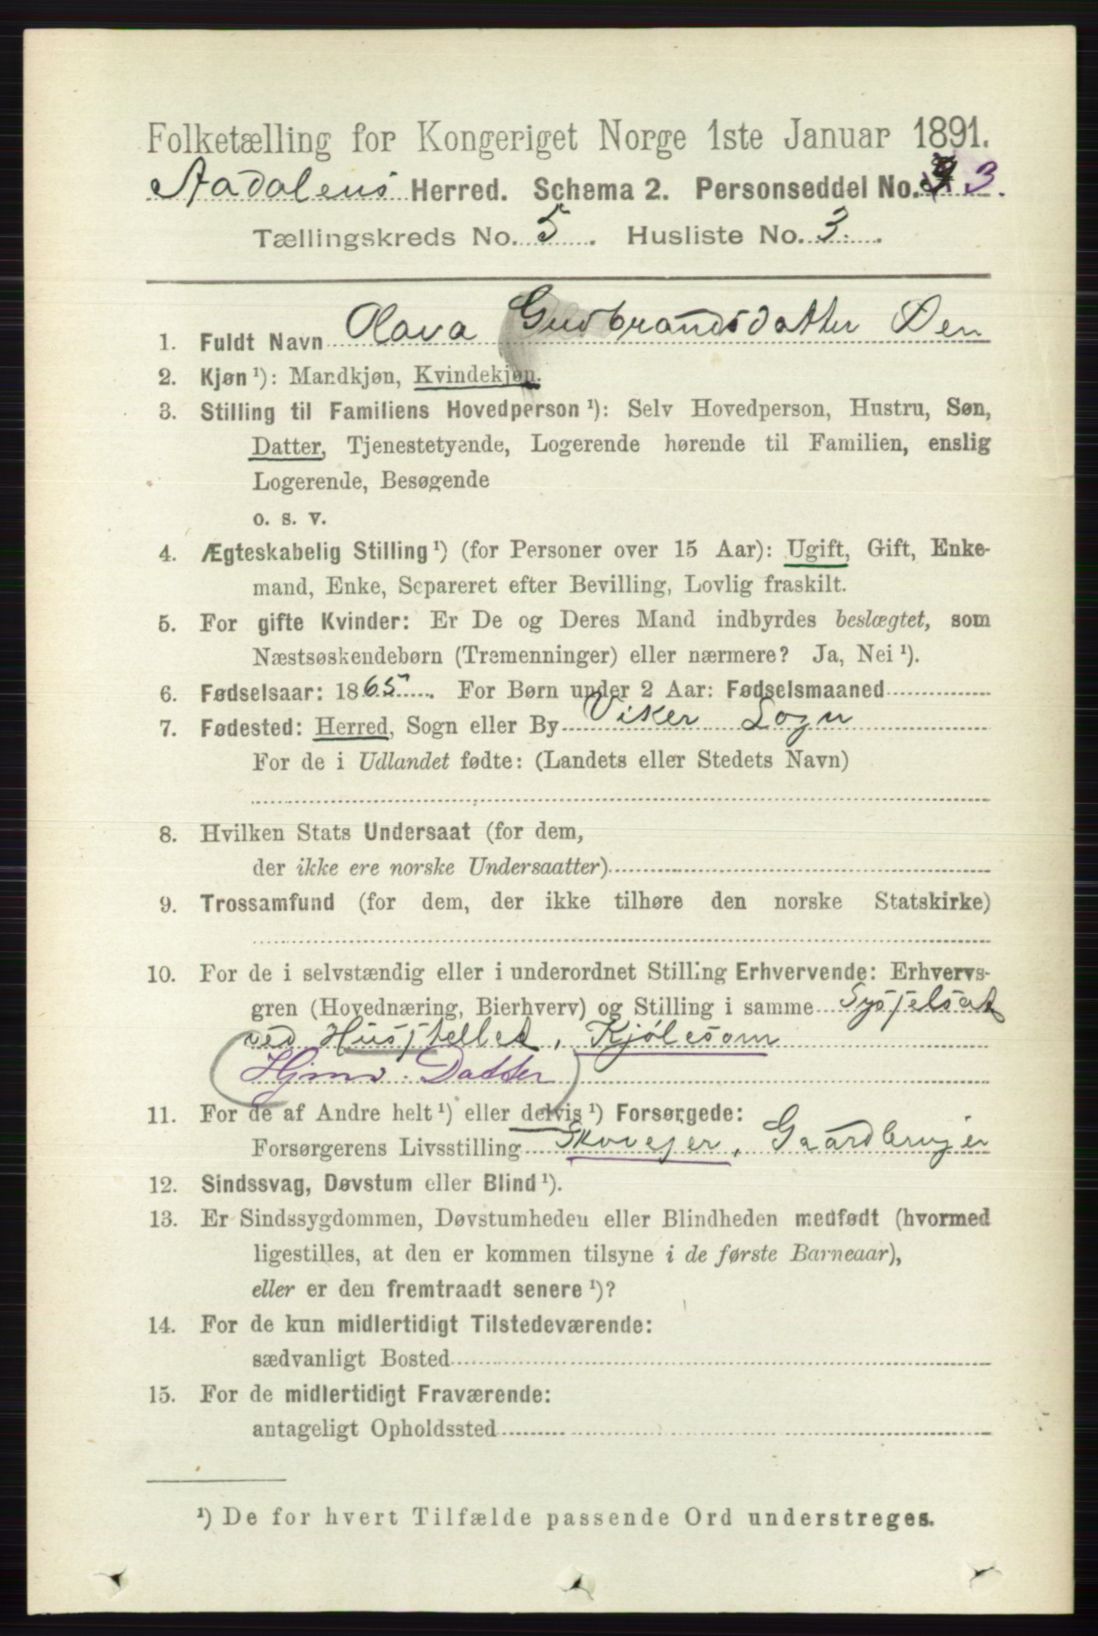 Folketælling for Kongeriget Norge 1ste Januar 1891.
Aadalens Herred. Schema 2. Personseddel No. 3.
Tællingskreds No. 5. Husliste No. 3.
1. Fuldt Navn Olava Gudbrandsdatter Øen
2. Kjøn ¹): Mandkjøn, Kvindekjøn.
3. Stilling til Familiens Hovedperson ¹): Selv Hovedperson, Hustru, Søn,
Datter, Tjenestetyende, Logerende hørende til Familien, enslig
Logerende, Besøgende
o. s. v.
4. Ægteskabelig Stilling ¹) (for Personer over 15 Aar): Ugift, Gift, Enke-
mand, Enke, Separeret efter Bevilling, Lovlig fraskilt.
5. For gifte Kvinder: Er De og Deres Mand indbyrdes beslægtet, som
Næstsøskendebørn (Tremenninger) eller nærmere? Ja, Nei ¹).
6. Fødselsaar: 1865. For Børn under 2 Aar: Fødselsmaaned
7. Fødested: Herred, Sogn eller By Viker Sogn
For de i Udlandet fødte: (Landets eller Stedets Navn)
8. Hvilken Stats Undersaat (for dem,
der ikke ere norske Undersaatter)
9. Trossamfund (for dem, der ikke tilhøre den norske Statskirke)
10. For de i selvstændig eller i underordnet Stilling Erhvervende: Erhvervs-
gren (Hovednæring, Bierhverv) og Stilling i samme Sysselsat
ved Husstellet, Kjølesom
(Hjmv. Datter)
11. For de af Andre helt ¹) eller delvis ¹) Forsørgede:
Forsørgerens Livsstilling Skovejer, Gaardbruger
12. Sindssvag, Døvstum eller Blind ¹).
13. Er Sindssygdommen, Døvstumheden eller Blindheden medfødt (hvormed
ligestilles, at den er kommen tilsyne i de første Barneaar),
eller er den fremtraadt senere ¹)?
14. For de kun midlertidigt Tilstedeværende:
sædvanligt Bosted
15. For de midlertidigt Fraværende:
antageligt Opholdssted
¹) De for hvert Tilfælde passende Ord understreges.